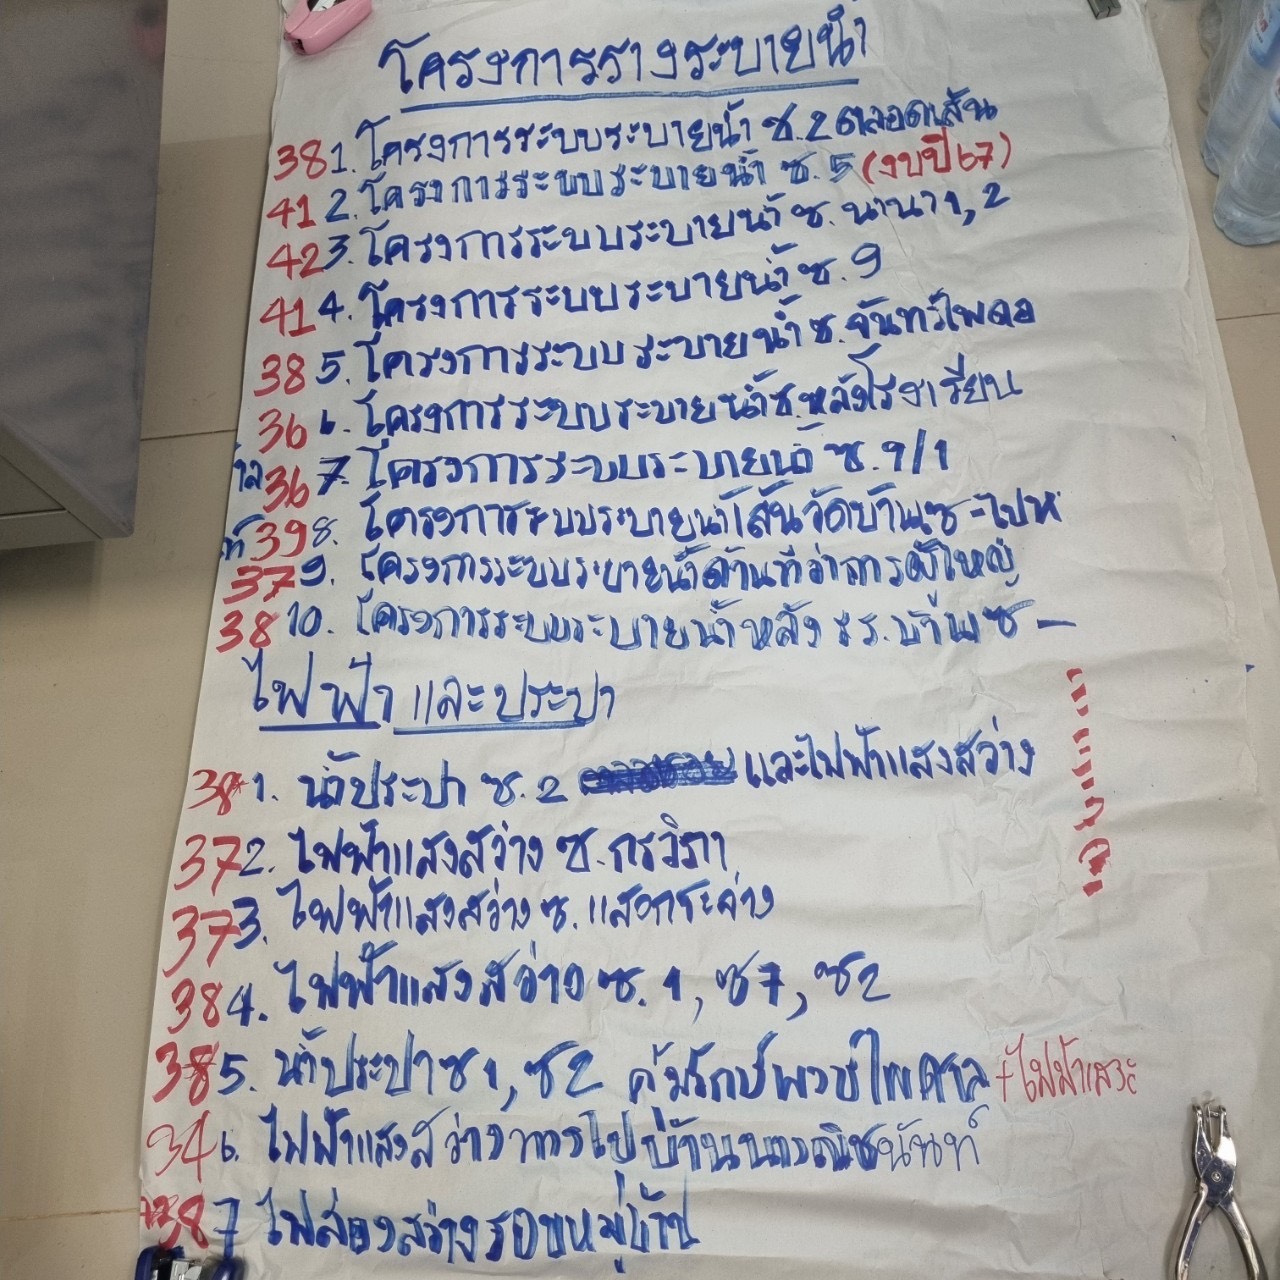 โครงการรางระบายน้ำ
38 1. โครงการระบบระบายน้ำ ซ.2 ตลอดเส้น
41 2. โครงการระบบระบายน้ำ ซ.5 (งบปี 67)
42 3. โครงการระบบระบายน้ำ ซ. นานา 1, 2
41 4. โครงการระบบระบายน้ำ ซ.9
38 5. โครงการระบบระบายน้ำ ซ.จันทร์ไพลอ
36 6. โครงการระบบระบายน้ำ ซ.หลังโรงเรียน
36 7. โครงการระบบระบายน้ำ ซ.9/1
39 8. โครงการระบบระบายน้ำเส้นวัดบ้านซ - ไปห
37 9. โครงการระบบระบายน้ำด้านที่ว่าการผู้ใหญ่
38 10. โครงการระบบระบายน้ำหลัง รร.บ้านซ -
ไฟฟ้า และประปา
38 1. น้ำประปา ซ.2 และไฟฟ้าแสงสว่าง
37 2. ไฟฟ้าแสงสว่าง ซ.กรวิภา
37 3. ไฟฟ้าแสงสว่าง ซ.แสงกระจ่าง
38 4. ไฟฟ้าแสงสว่าง ซ.1, ซ7, ซ2
38 5. น้ำประปา ซ1, ซ2 คุ้มรักษ์พงษ์ไพศาล +ไฟฟ้าแสว
34 6. ไฟฟ้าแสงสว่างทางไปบ้านนารณิชนันท์
38 7 ไฟส่องสว่างรอบหมู่บ้าน